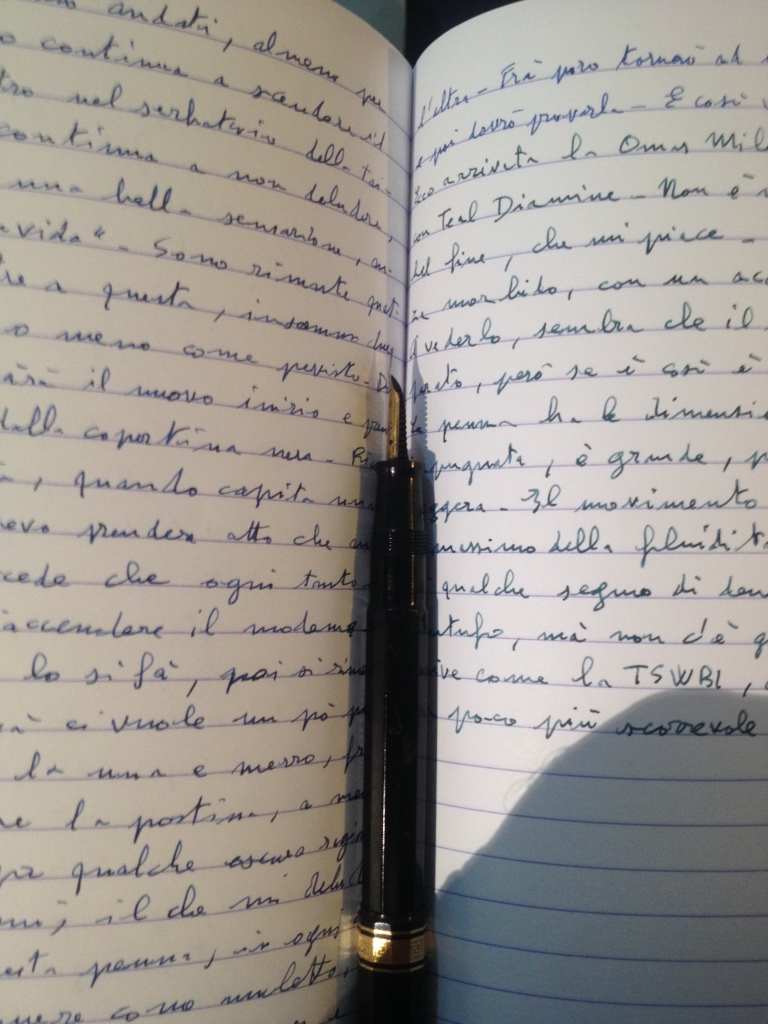 andati, almeno per
o continua a scendere il
tro nel serbatoio della tai-
continua a non deludere,
una bella sensazione, an
vida" - Sono rimaste quat-
tre a questa, insomma due
o meno come previsto - D
arà il nuovo inizio e pren
dalla copertina nera - Ri
, quando capita una
evo prendere atto che an
cede che ogni tanto
iaccendere il modem
lo si fà, poi si rim
ci vuole un pò p
la una e mezzo, fr
re la postina, a me
qualche oscura ragi
il che mi delud
sta penna, in ogn
come muletto,
l'altra - Frà poco tornerò ad
e poi dovrò provarla - E così
Ecco arrivata la Omas Mil
con Teal Diamine - Non è
del fine, che mi piace -
za morbido, con un acc
A vederlo, sembra che il
però se è così è
La penna ha le dimensi
pugnata, è grande, p
ggera - Il movimento
massimo della fluidità
qualche segno di
ntufo, mà non c'è q
ive come la TSWBI,
poco più scorrevole